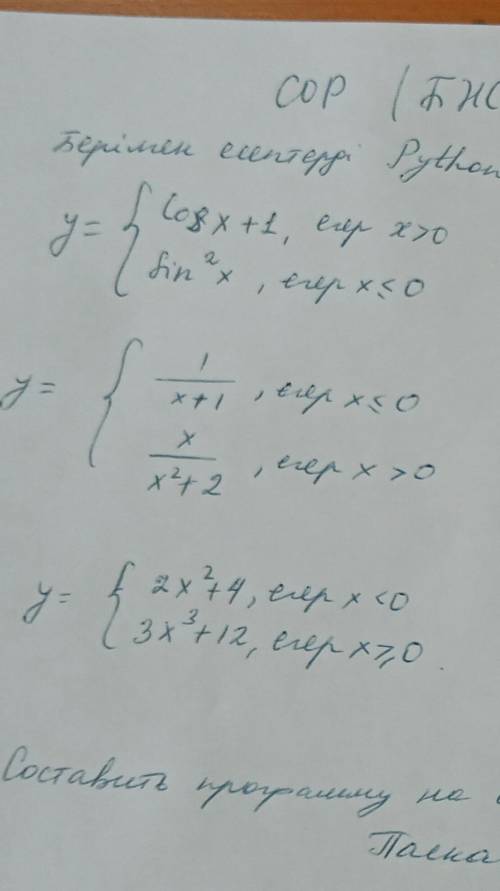 СОР (БЖ
Берілмен есептерді Python
y = { cos x + 1, егер x > 0
sin² x, егер x ≤ 0
y = { 1/(x+1), егер x ≤ 0
x/(x²+2), егер x > 0
y = { 2x² + 4, егер x < 0
3x³ + 12, егер x ≥ 0.
Составить программу на
Паска